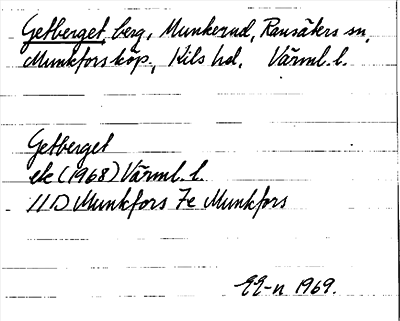 Getberget, berg, Munkerud, Ransäters sn,
Munkfors köp., Kils hd. Värml. l.
Getberget
ek (1968) Värml. l.
11D Munkfors 7e Munkfors
EE-n 1969.